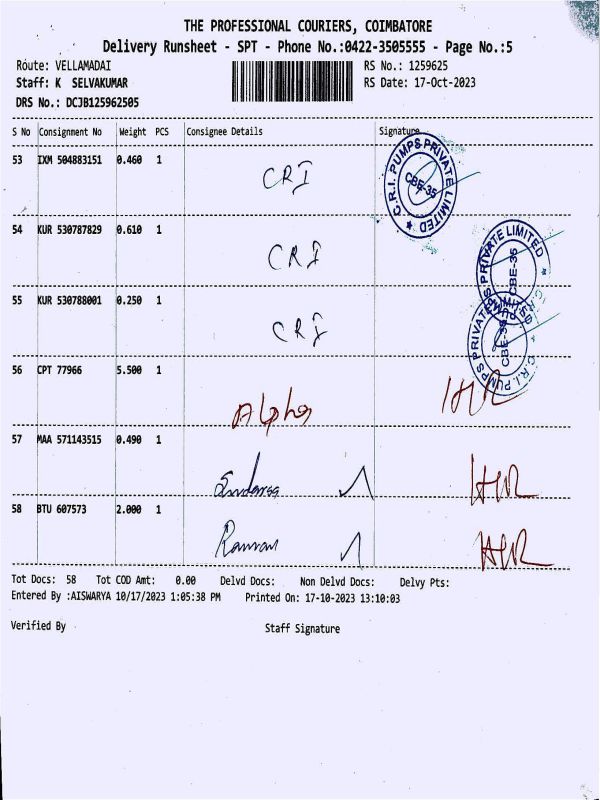 THE PROFESSIONAL COURIERS, COIMBATORE
Delivery Runsheet - SPT - Phone No.:0422-3505555 - Page No.:5
Route: VELLAMADAI RS No.: 1259625
Staff: K SELVAKUMAR RS Date: 17-Oct-2023
DRS No.: DCJB125962505
S No Consignment No Weight PCS Consignee Details Signature
53 IXM 504883151 0.460 1 CRI C.R.I. PUMPS PRIVATE LIMITED CBE-35
54 KUR 530787829 0.610 1 CRI PRIVATE LIMITED CBE-35
55 KUR 530788001 0.250 1 CRI C.R.I. PUMPS PRIVATE LIMITED CBE-35
56 CPT 77966 5.500 1 Alpha
57 MAA 571143515 0.490 1
58 BTU 607573 2.000 1 Raman
Tot Docs: 58 Tot COD Amt: 0.00 Delvd Docs: Non Delvd Docs: Delvy Pts:
Entered By :AISWARYA 10/17/2023 1:05:38 PM Printed On: 17-10-2023 13:10:03
Verified By Staff Signature